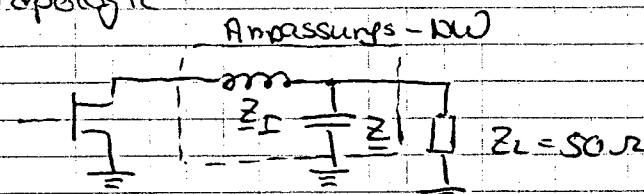 Anpassungs-NW
Z_I
Z
Z_L = 50 Ω